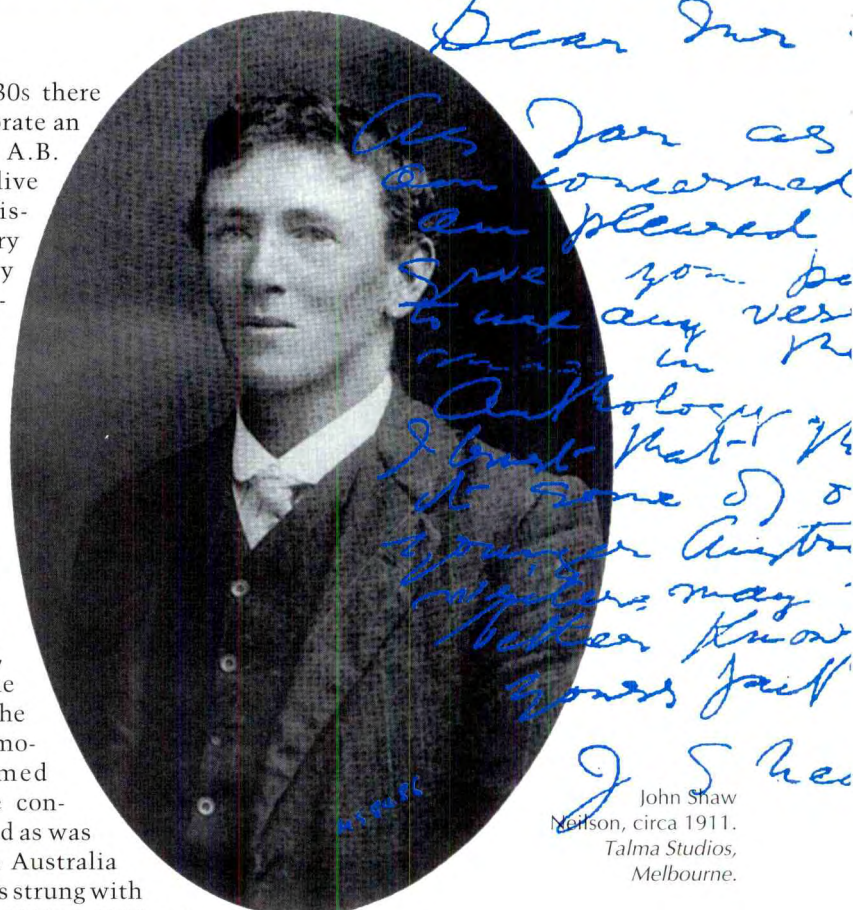 30s there
rate an
A.B.
live
is-
ry
y
-
le
he
mo-
med
e con-
d as was
Australia
s strung with
Dear Mr
As far as
am concerned
am pleased
give you pe
to use any vers
in the
Anthology
I trust that th
it some of o
younger Austr
writers may
better Know
yours fait
J S Nei
John Shaw
Neilson, circa 1911.
Talma Studios,
Melbourne.